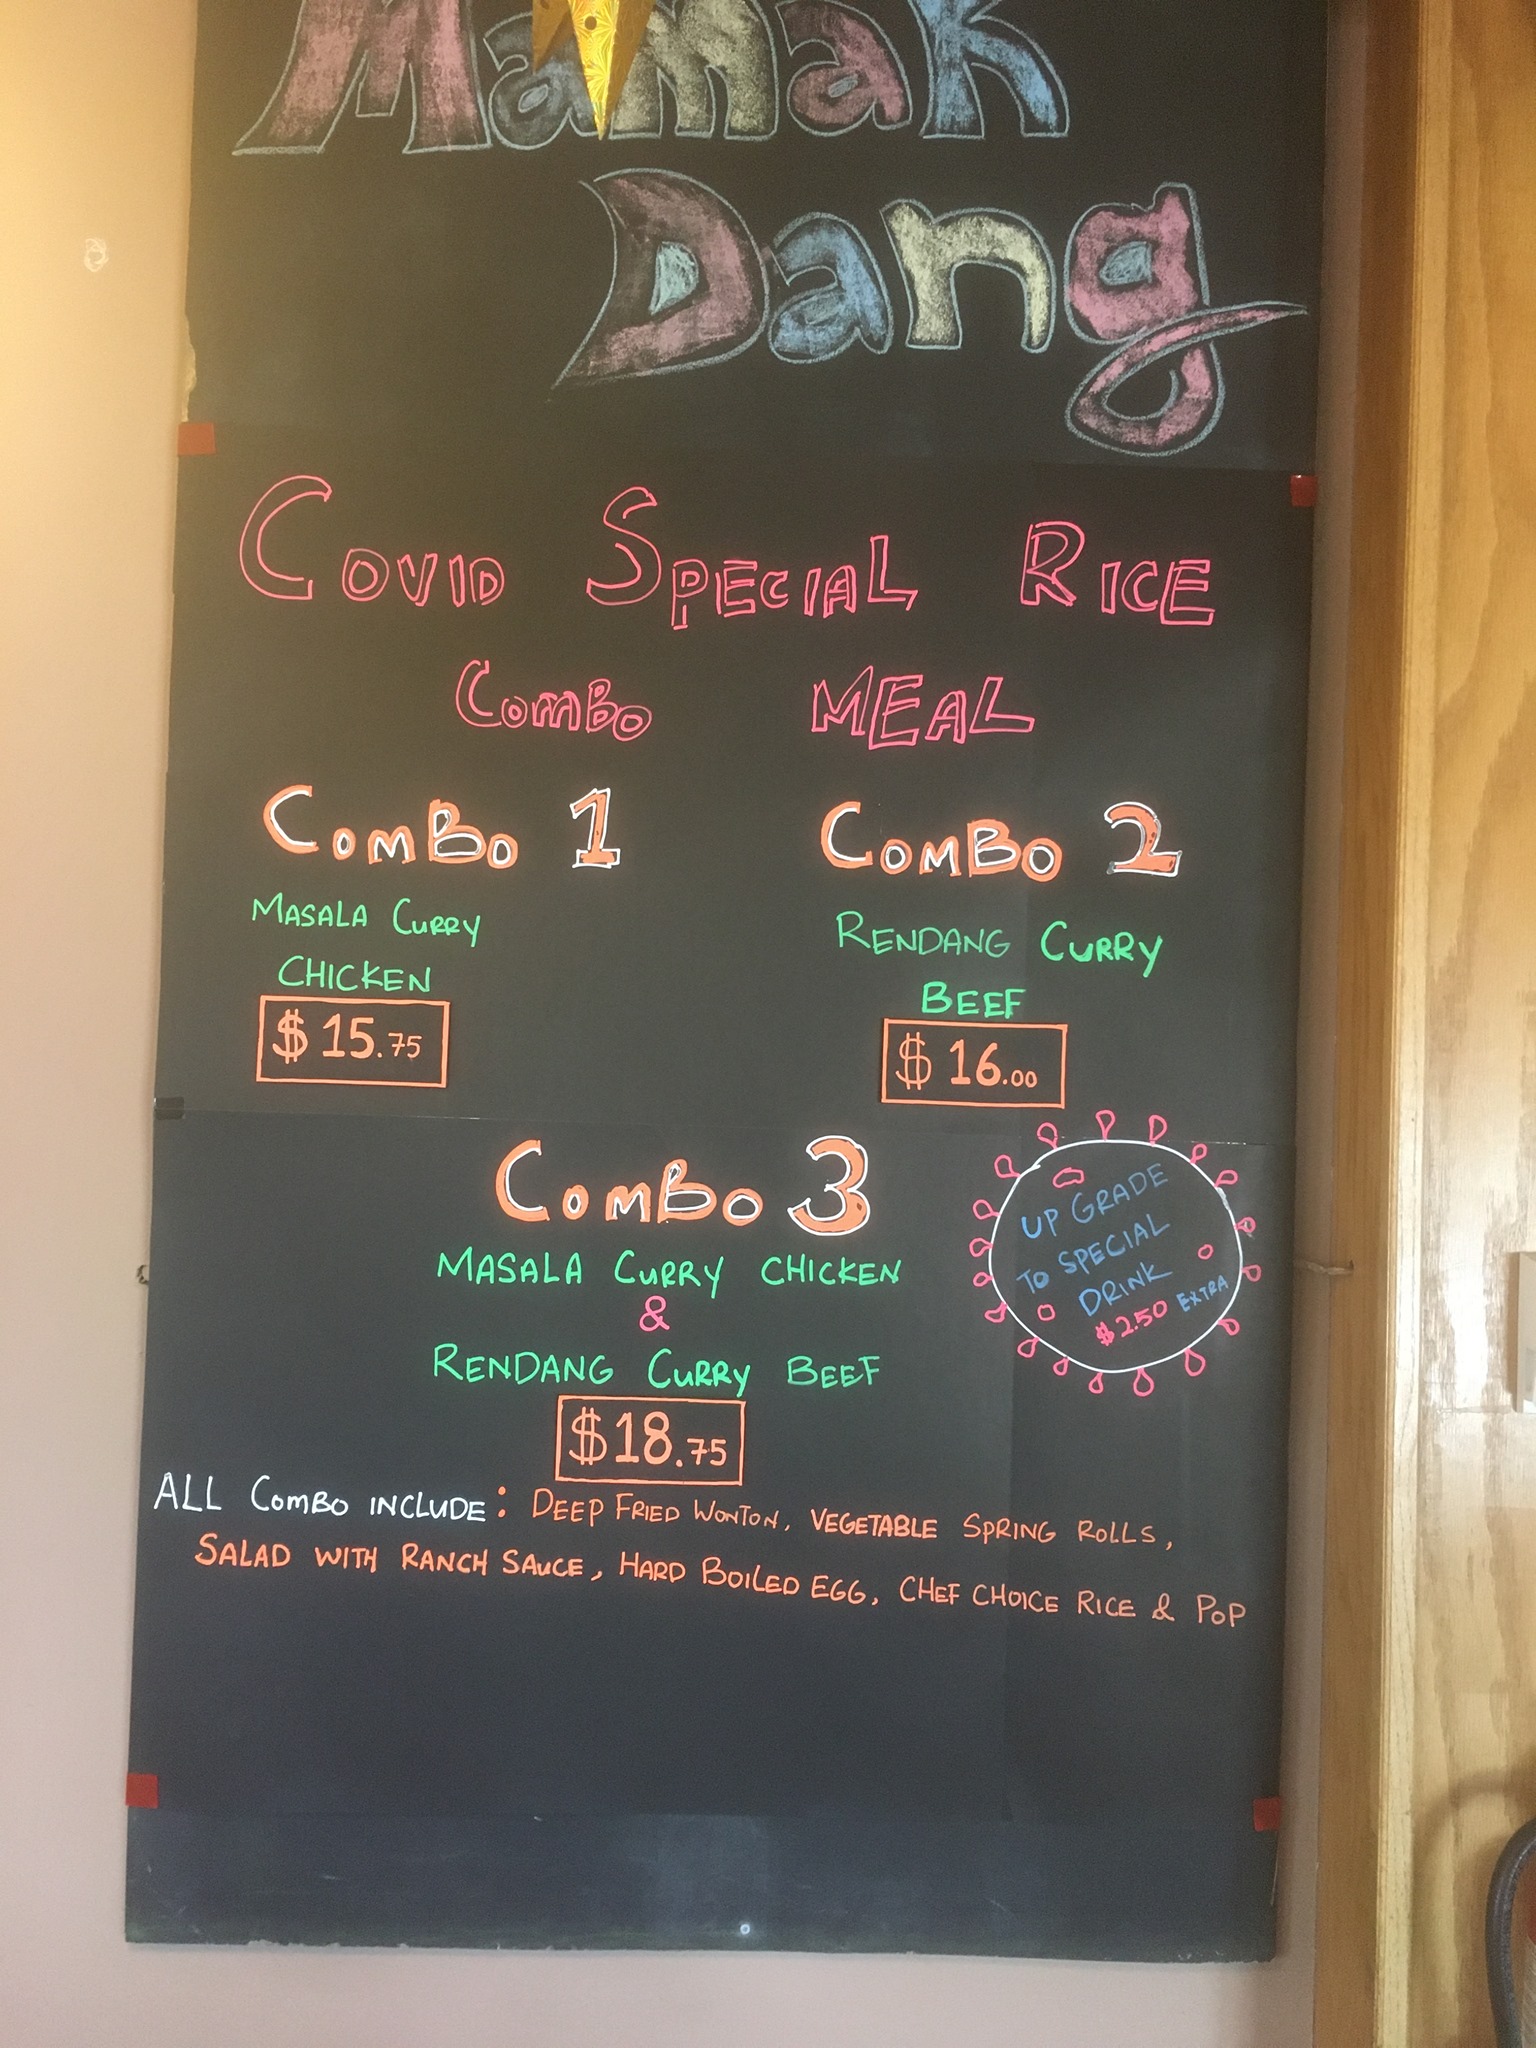 Mamak
Dang
COVID SPECIAL RICE
COMBO MEAL
COMBO 1
MASALA CURRY
CHICKEN
$ 15.75
COMBO 2
RENDANG CURRY
BEEF
$ 16.00
COMBO 3
MASALA CURRY CHICKEN
&
RENDANG CURRY BEEF
$18.75
UP GRADE
TO SPECIAL
DRINK
$2.50 EXTRA
ALL COMBO INCLUDE: DEEP FRIED WONTON, VEGETABLE SPRING ROLLS,
SALAD WITH RANCH SAUCE, HARD BOILED EGG, CHEF CHOICE RICE & POP